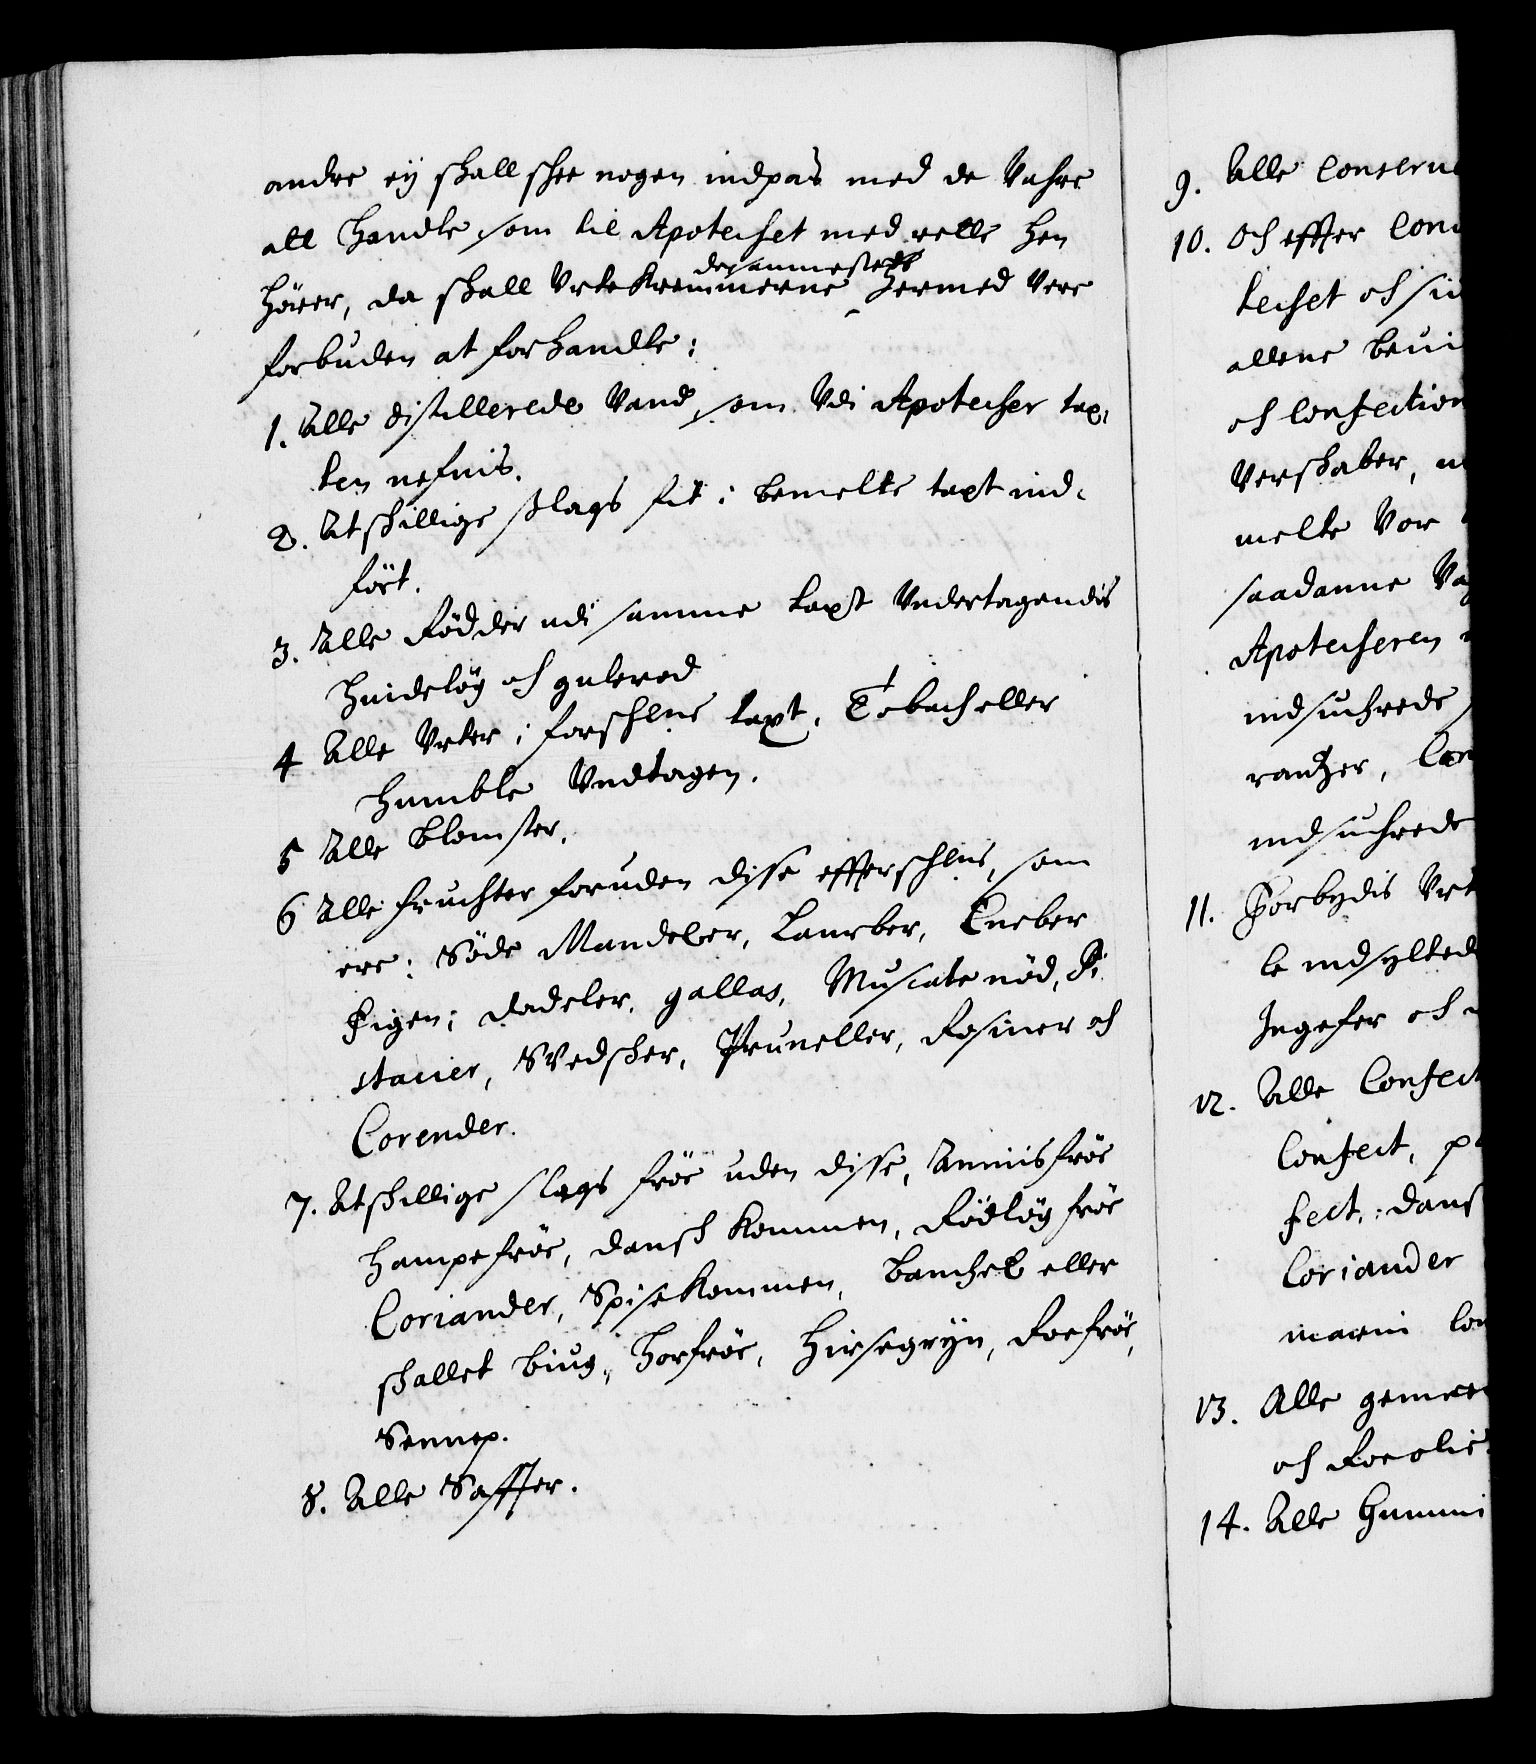 andre ey skall skee nogen indpas med de Vahre
att handle som til Apotecket med rette hen
hörer, da skall Vrtekremmerne dersammesteds hermed vere
forbuden at forhandle:
1. Alle distillerede Vand, som Vdi Apotecker tax¬
ten nefnis.
2. Atskillige slags fit i bemelte taxt ind¬
fört.
3. Alle Rödder udi samme taxt Undertagendis
Huidelög och gulerod
4 Alle Vrter i forschrne taxt, Tobach eller
Humble Undtagen.
5 Alle Blomster.
6 Alle fruchter foruden disse effterschrne, som
ere: Söde Mandeler, Laurber, Eneber
Figen, Dadeler, gallas, Muscate nöd, Pi
stacier, Svedsker, Pruneller, Rosiner och
Corender.
7. Atskillige slags fröe uden disse, Annisfröe
Hampefröe, dansk Kommen, Rödlög fröe
Coriander, Spisekommen, Banckel eller
skallet biug, Horfröe, Hirsegryn, Roefröe,
Sennep.
8. Alle Saffter.
9. Alle Conserue
10. Och effter Con
tecket och si
allene beui
och Confection
Verskaber, m
melte Vor
saadanne Va
Apotecheren
indsuckrede
rantzer, C
indsuckrede
11. Forbydis Vrt
le indsyltede
Ingefer och
12. Alle Confect
Confect, p
fect, dans
Coriander
marin con
13. Alle gemee
och Roeolie
14. Alle Gummi